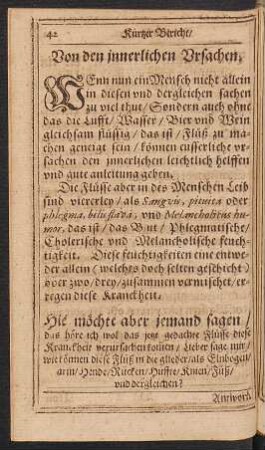 42 Kurtzer Bericht/
Von den innerlichen Vrsachen.
WEnn nun ein Mensch nicht allein
in diesen vnd dergleichen sachen
zu viel thut/ Sondern auch ohne
das die Lufft/ Wasser/ Bier vnd Wein
gleichsam flüssig/ das ist/ Flüß zu ma-
chen geneigt sein/ können eusserliche vr-
sachen den innerlichen leichtlich helffen
vnd gute anleitung geben.
Die Flüsse aber in des Menschen Leib
sind viererley/ als Sangvis, pituita oder
phlegma, bilis flava, vnd Melancholicus hu-
mor, das ist/ das Blut/ Phlegmatische/
Cholerische vnd Melancholische feuch-
tigkeit. Diese feuchtigkeiten eine entwe-
der allein (welchs doch selten geschicht)
oder zwo/ drey/ zusammen vermischet/ er-
regen diese Kranckheit.
Hie möchte aber jemand sagen/
das höre ich wol das jetz gedachte Flüsse diese
Kranckheit verursachen können/ Lieber sage mir/
wie können diese Flüß in die glieder/ als Elnbogen/
arm/ Hende/ Rücken/ Hüffte/ Knien/ Füß/
vnd dergleichen?
Antwort.